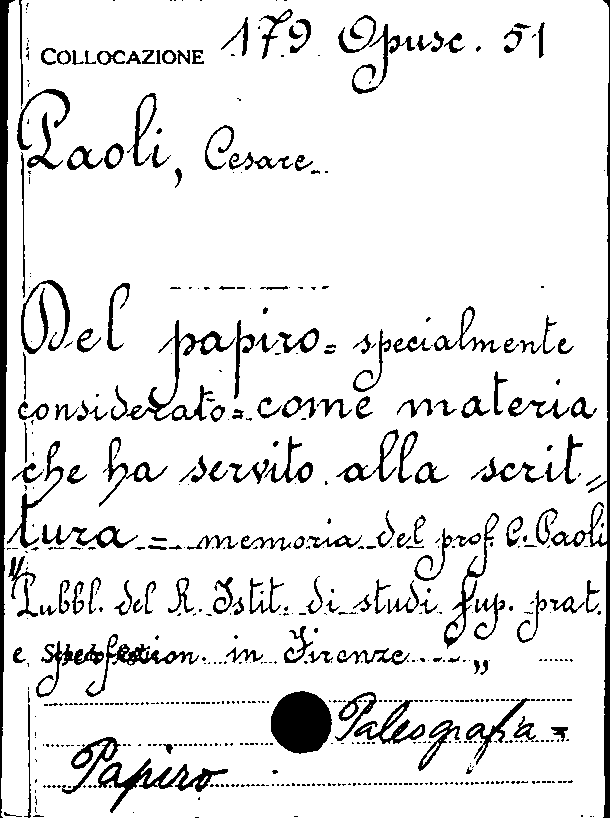 COLLOCAZIONE 179 Opusc. 51
Paoli, Cesare
Del papiro = specialmente
considerato = come materia
che ha servito alla scrit=
tura = memoria del prof. C. Paoli
"Pubbl. del R. Istit. di studi sup. prat.
e perfezion. in Firenze... "
Paleografia =
Papiro